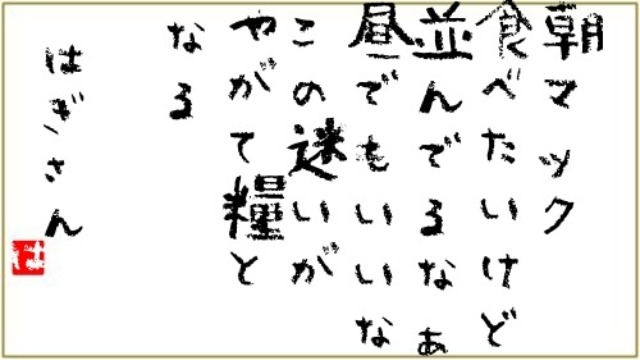 朝マック
食べたいけど
並んでるなぁ
昼でもいいな
この迷いが
やがて糧と
なる
はぎさん
は